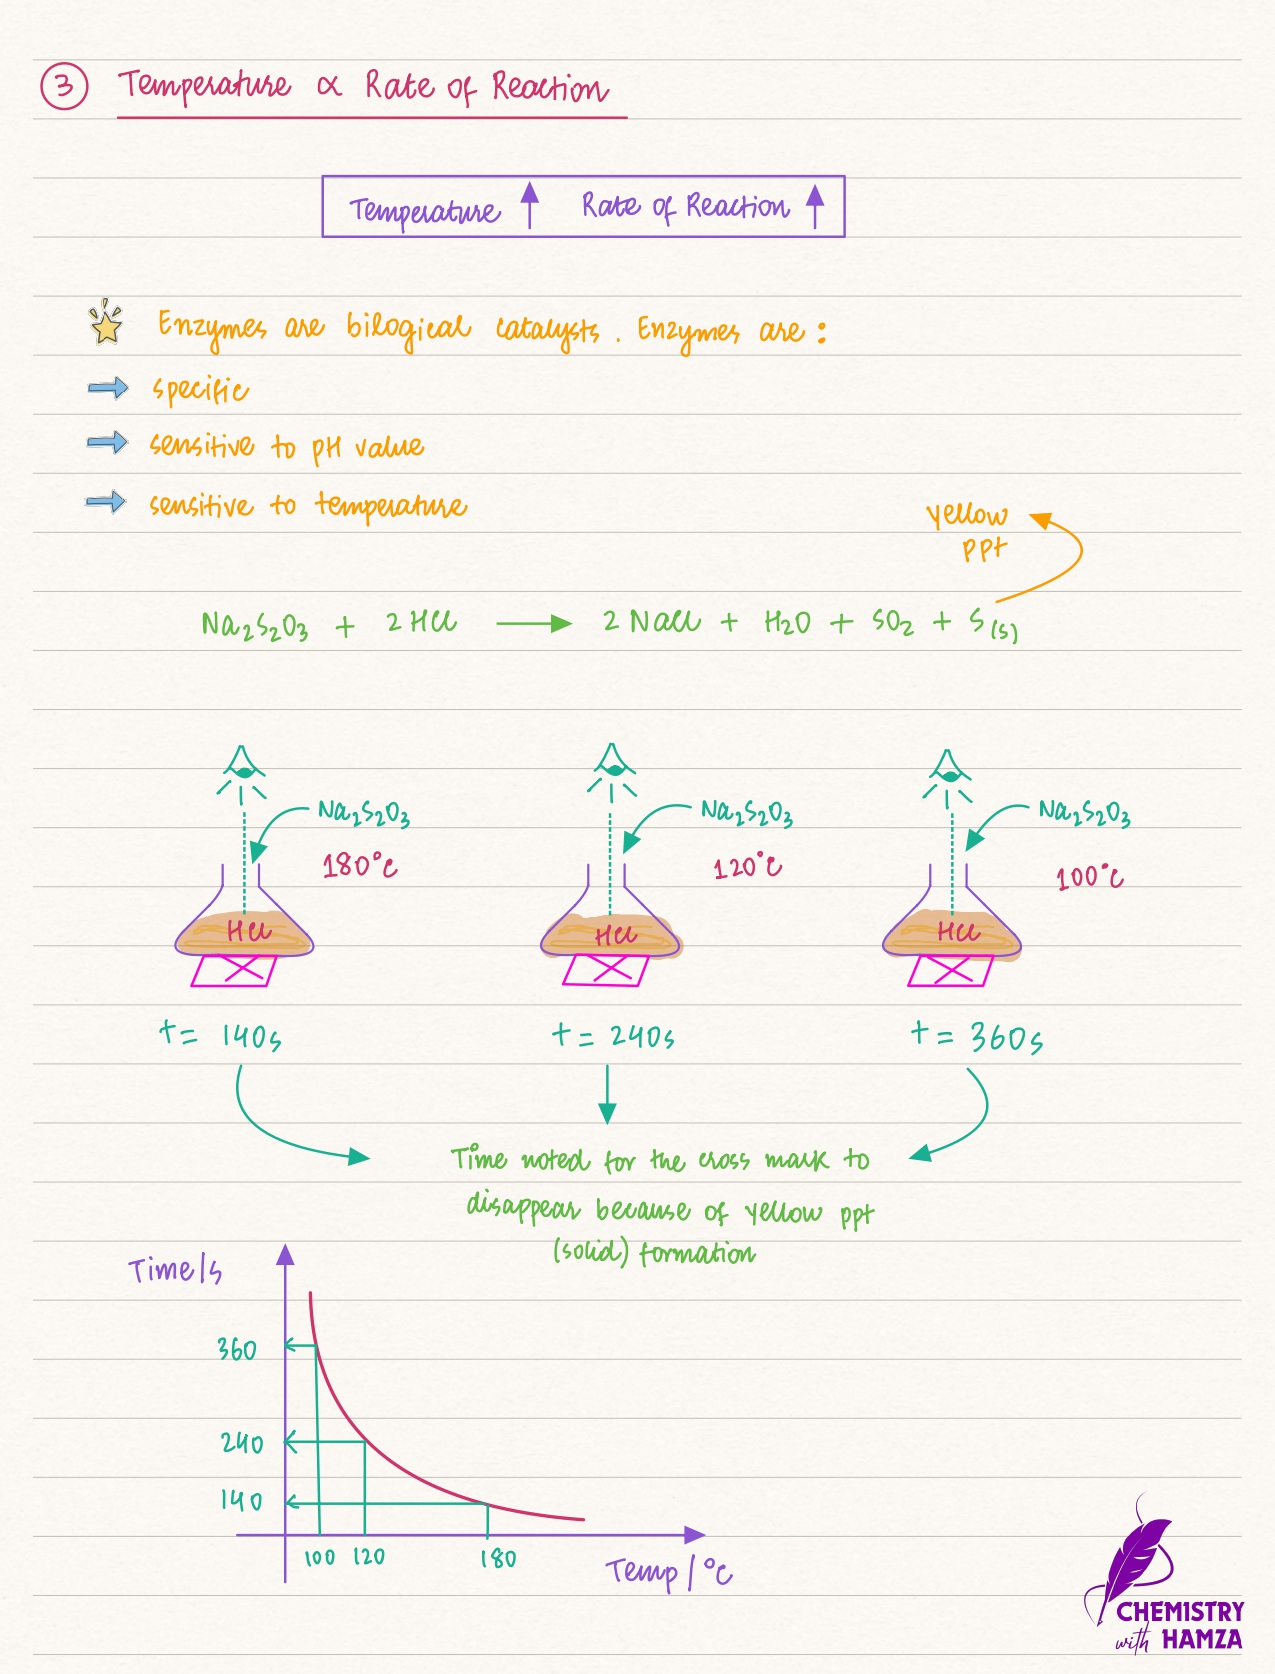 3 Temperature ∝ Rate of Reaction
Temperature ↑ Rate of Reaction ↑
Enzymes are bilogical catalysts. Enzymes are :
specific
sensitive to pH value
sensitive to temperature
yellow
ppt
Na₂S₂O₃ + 2HCl → 2NaCl + H₂O + SO₂ + S(s)
Na₂S₂O₃ Na₂S₂O₃ Na₂S₂O₃
180°C 120°C 100°C
HCl HCl HCl
t= 140s t= 240s t= 360s
Time noted for the cross mark to
disappear because of yellow ppt
(solid) formation
Time/s
360
240
140
100 120 180
Temp/°C
CHEMISTRY
with HAMZA